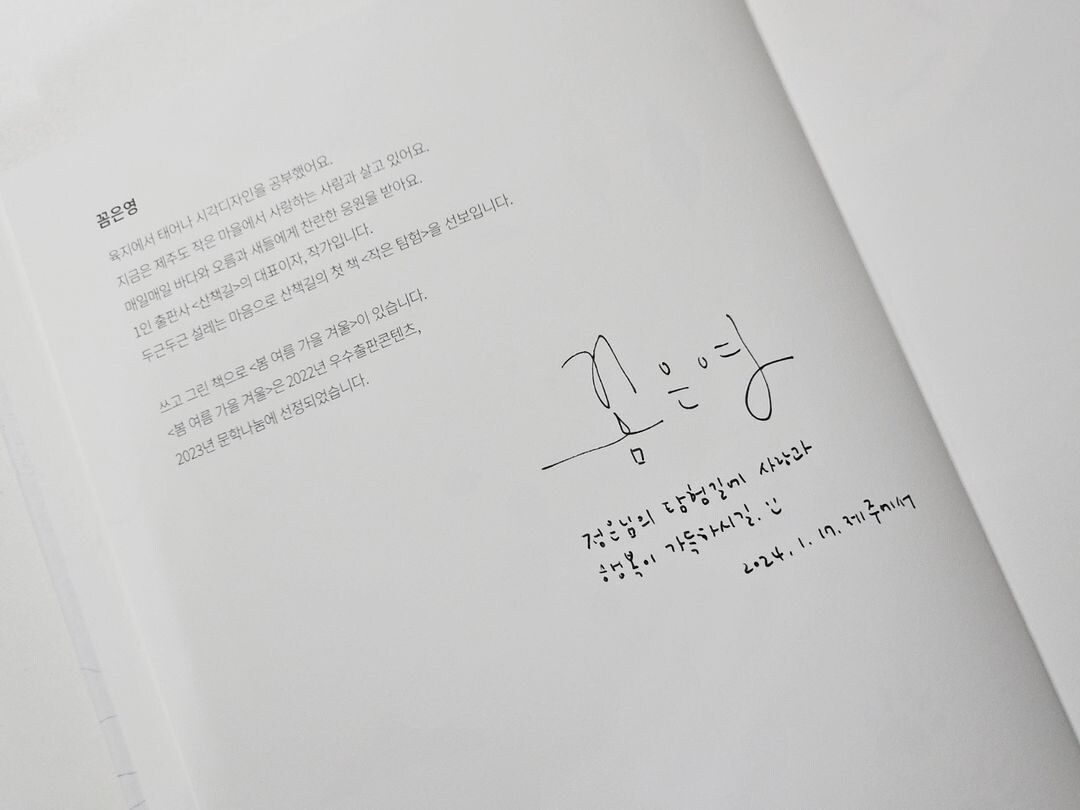 꼼은영
육지에서 태어나 시각디자인을 공부했어요.
지금은 제주도 작은 마을에서 사랑하는 사람과 살고 있어요.
매일매일 바다와 오름과 새들에게 찬란한 응원을 받아요.
1인 출판사 <산책길>의 대표이자, 작가입니다.
두근두근 설레는 마음으로 산책길의 첫 책 <작은 탐험>을 선보입니다.
쓰고 그린 책으로 <봄 여름 가을 겨울>이 있습니다.
<봄 여름 가을 겨울>은 2022년 우수출판콘텐츠,
2023년 문학나눔에 선정되었습니다.
꼼은영
정은님의 탐험길에 사랑과
행복이 가득하시길. :)
2024. 1. 17. 제주에서